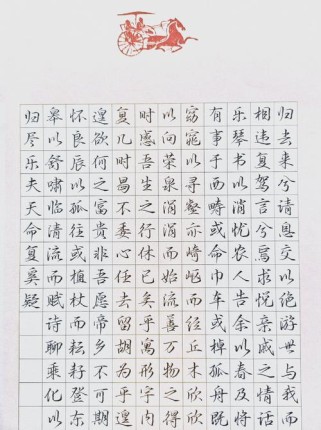 归去来兮请息交以绝游世与我而
相违复驾言兮焉求悦亲戚之情话
乐琴书以消忧农人告余以春及将
有事于西畴或命巾车或棹孤舟既
窈窕以寻壑亦崎岖而经丘木欣欣
以向荣泉涓涓而始流善万物之得
时感吾生之行休已矣乎寓形宇内
复几时曷不委心任去留胡为乎遑
遑欲何之富贵非吾愿帝乡不可期
怀良辰以孤往或植杖而耘耔登东
皋以舒啸临清流而赋诗聊乘化以
归尽乐夫天命复奚疑